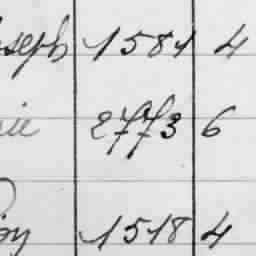 oseph 1581 4
rie 2773 6
1518 4